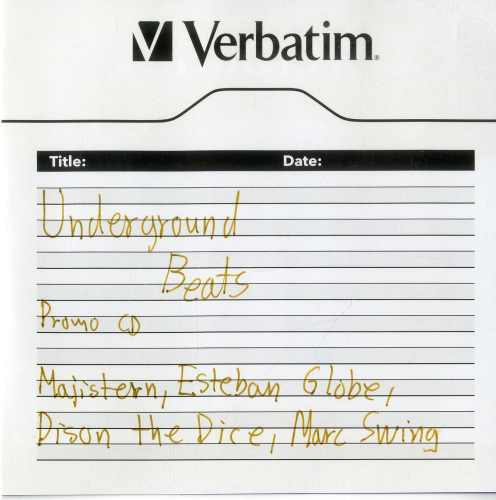 Verbatim.
Title: Date:
Underground
Beats
Promo CD
Majistern, Esteban Globe,
Dison the Dice, Marc Swing